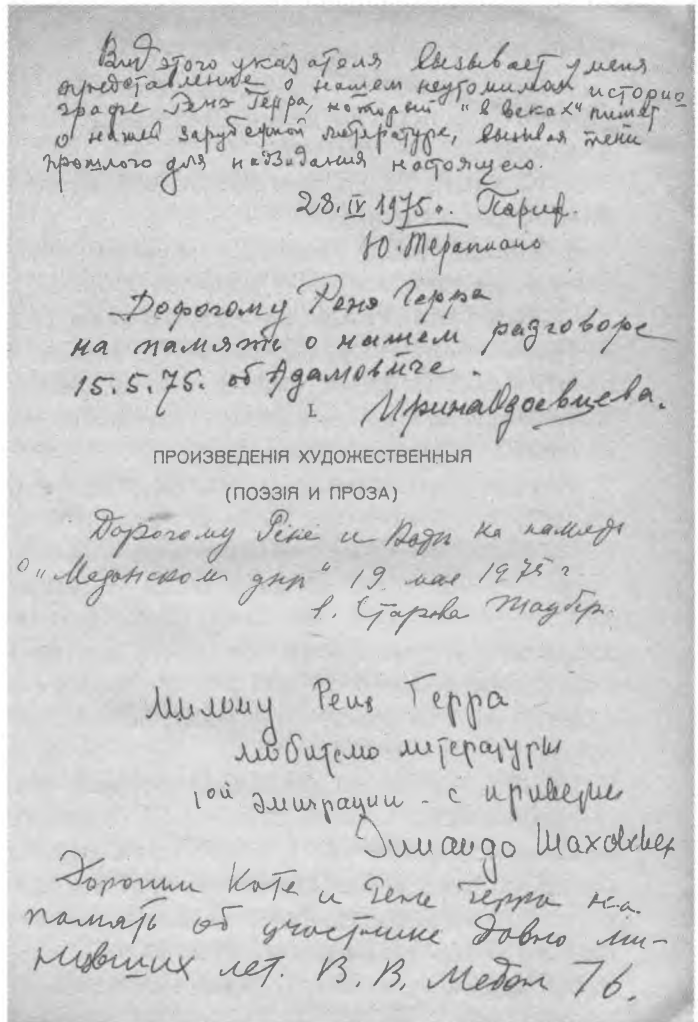 Вид этого указателя вызывает у меня
представление о нашем неутомимом историо
графе Ренэ Герра, который "в веках" пишет
о нашей зарубежной литературе, вызывая тени
прошлого для назидания настоящего.
28.IV 1975 г. Париж.
Ю. Терапиано
Дорогому Ренэ Герра
на память о нашем разговоре
15.5.75. об Адамовиче.
I.
Ирина Одоевцева.
ПРОИЗВЕДЕНІЯ ХУДОЖЕСТВЕННЫЯ
(ПОЭЗІЯ И ПРОЗА)
Дорогому Рене и на память
о "Медонском дне" 19 мая 1975 г.
Милому Ренэ Герра
любителю литературы
1ой эмиграции - с приветом
Шаховская
Дорогим Кате и Рене Герра на
память об участнике давно ми-
нувших лет. В. В. Медон 76.